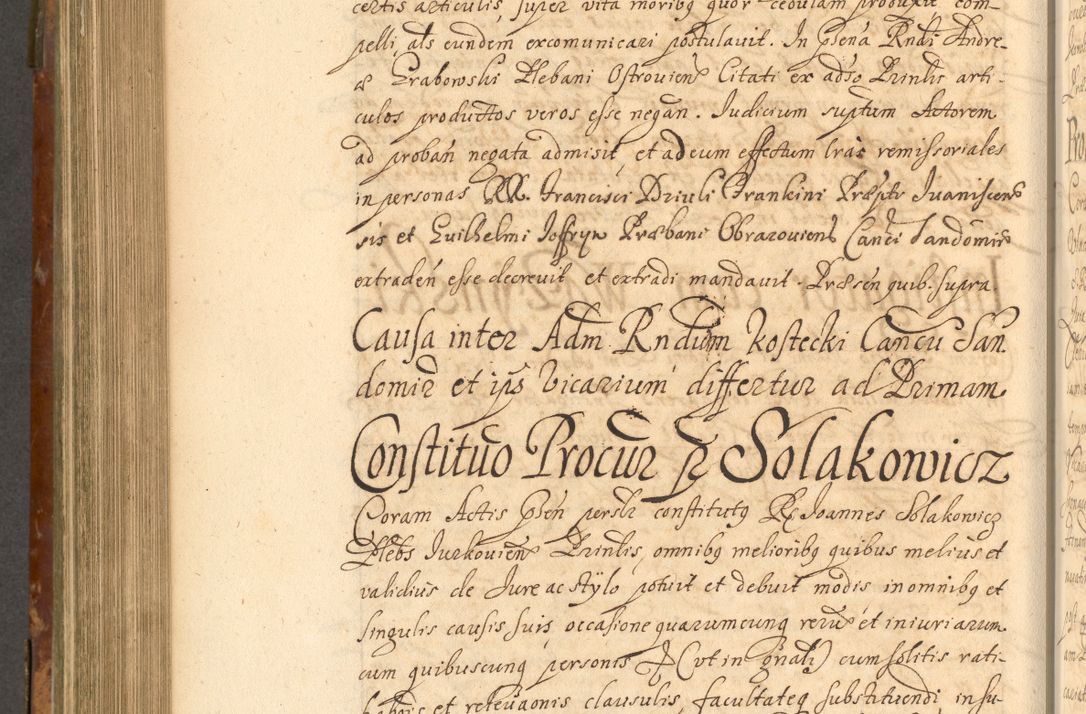 certis articulis, super vita moribq quor cedulam produxit com-
pelli, als eundem excomunicari postulavit. In psēna Rndi Andre-
æ Grabowski Plebani Ostroviens Citati ex adso Prinlis arti-
culos productos veros esse negan. Iudicium suptum Actorem
ad proban negata admisit, et ad eum effectum lras remissoriales
in personas RR. Francisci Driuli Frankini Præpti Ivaniscen
sis et Guilhelmi Joffryn Præbani Obrazoviens Canci Sandomir
extraden esse decrevit et extradi mandavit. Præsen quib. supra.
Causa inter Adm Rndum Kostecki Cancu San
domir et ips vicarium differtur ad Primam
Constituo Procur p Solakowicz
Coram Actis psen persli constitutq R Joannes Solakowicz
Plebs Jurkovien Prinlis, omnibq melioribq quibus melius et
validius de Jure ac stylo potuit et debuit modis in omnibq et
singulis causis suis occasione quarumcunq reru et iniuriarum
cum quibuscunq personis (ut in gnali) cum solitis rati-
habnis et relevaonis clausulis, facultateq substituendi insu-